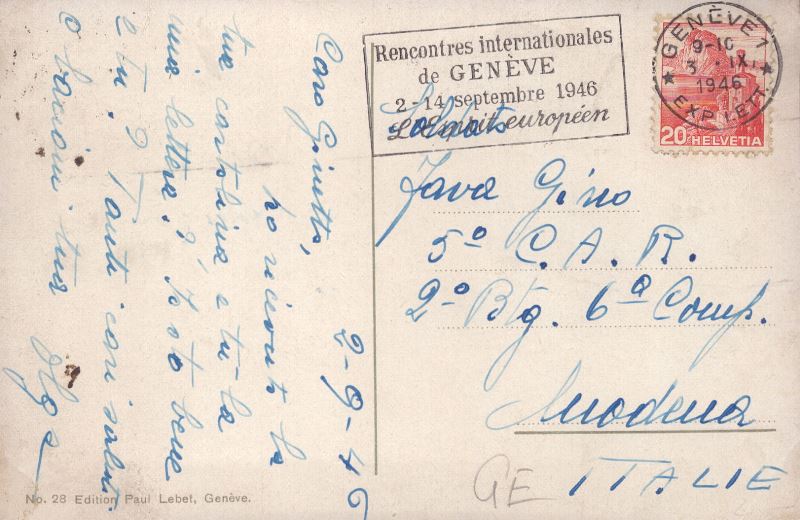 Rencontres internationales
de GENÈVE
2-14 septembre 1946
L'Esprit européen
GENÈVE 1
9-10
3. IX
1946
EXP. LETT.
20 HELVETIA
Soldato
Java Gino
5º C. A. R.
2º Btg. 6ª Comp.
Modena
ITALIE
GE
2-9-46
Caro Ginetto,
ho ricevuto la
tua cartolina e tu la
mia lettera? Io sto bene
e tu? Tanti cari saluti
e bacioni tua
Olga
No. 28 Edition Paul Lebet, Genève.